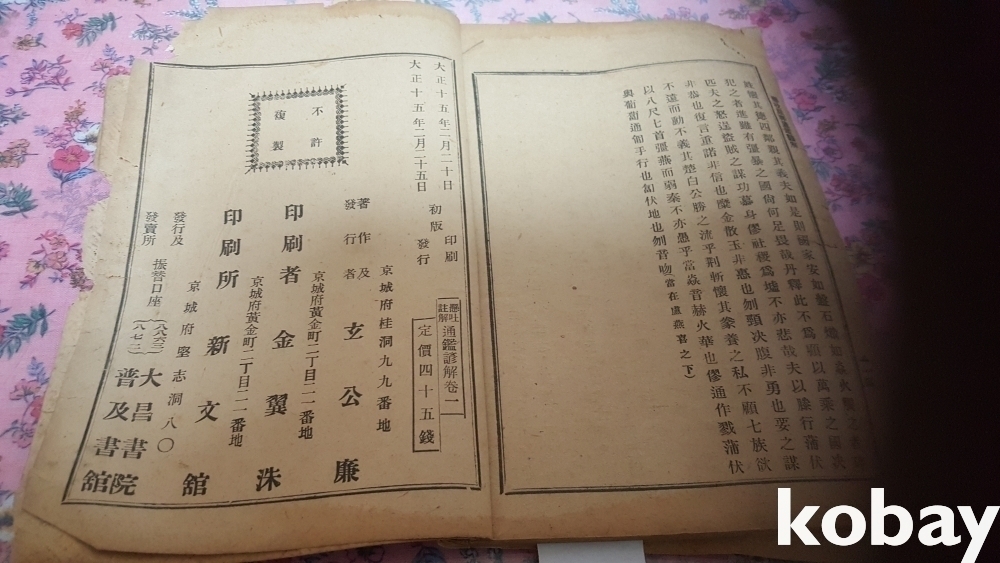 四鄰親其義夫如是則國家安如盤石熾如焱火觸之者
犯之者焦雖有彊暴之國尙何足畏哉丹釋此不爲顧以萬乘之國決
匹夫之怒逞盜賊之謀功隳身僇社稷爲墟不亦悲哉夫以膝行蒲伏
非恭也復言重諾非信也糜金散玉非惠也刎頸決腹非勇也要之謀
不遠而動不義其楚白公勝之流乎荊軻懷其豢養之私不顧七族欲
以八尺匕首彊燕而弱秦不亦愚乎 火華也僇通作戮蒲伏
與匍匐通匍手行也匐伏地也刎音吻當在虜燕喜之下)
懸吐註解 通鑑諺解卷一
定價四十五錢
大正十五年二月二十日 初版 印刷
大正十五年二月二十五日 發行
不許
復製
京城府桂洞九九番地
著作及發行者 玄公廉
京城府黃金町二丁目二一番地
印刷者 金翼洙
京城府黃金町二丁目二一番地
印刷所 新文舘
京城府堅志洞八〇
發行及發賣所
振替口座
(八八六三) 大昌書院
(八七二) 普及書舘
kobay